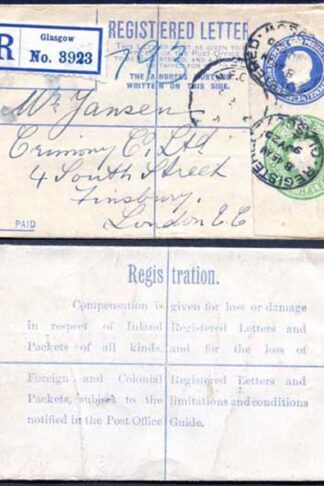 REGISTERED LETTER
THIS LETTER MUST BE GIVEN TO
R
Glasgow
No. 3923
793
THE ADDRESS MUST BE
WRITTEN ON THIS SIDE.
Mr. Jansen
Crimony C. Ltd
4 South Street
Finsbury
London E.C
PAID
REGISTERED
Registration.
Compensation is given for loss or damage
in respect of Inland Registered Letters and
Packets of all kinds, and for the loss of
Foreign and Colonial Registered Letters and
Packets, subject to the limitations and conditions
notified in the Post Office Guide.